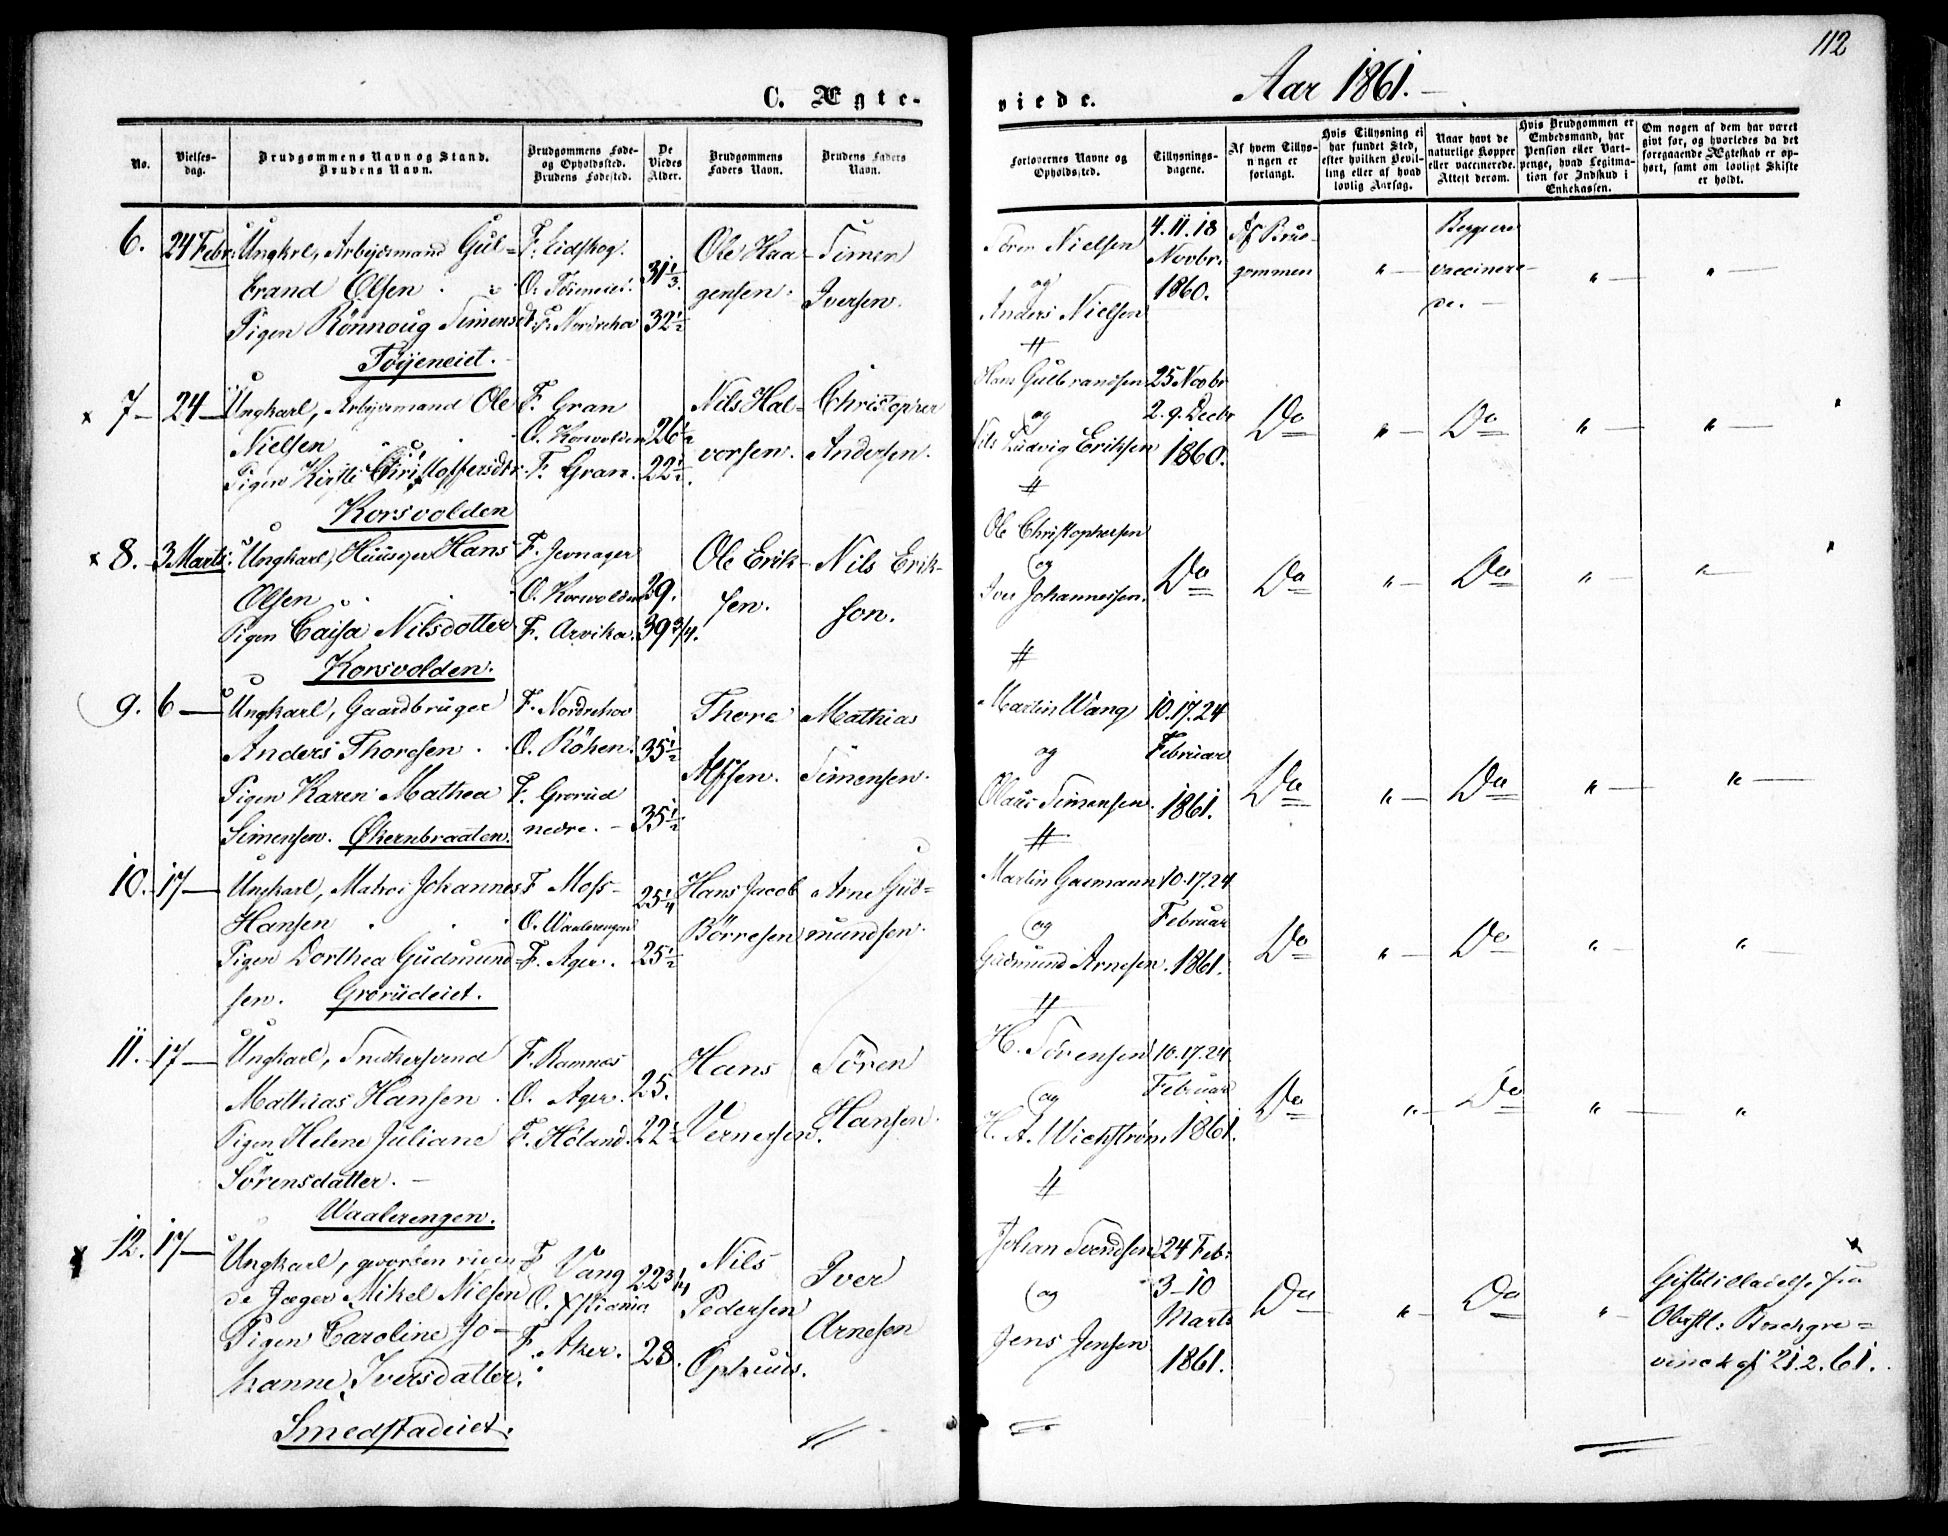 112
Aar 1861.
C. Ægte-
viede.
No.
Vielses-
dag.
Brudgommens Navn og Stand.
Brudens Navn.
Brudgommens Føde-
og Opholdssted.
Brudens Fødested.
De
Viedes
Alder.
Brudgommens
Faders Navn.
Brudens Faders
Navn.
Forlovernes Navne og
Opholdssted.
Tillysnings-
dagene.
Af hvem Tillys-
ningen er
forlangt.
Hvis Tillysning ei
har fundet Sted,
efter hvilken Bevil-
ling eller af hvad
lovlig Aarsag.
Naar havt de
naturlige Kopper
eller vaccinerede.
Attest derom.
Hvis Brudgommen er
Embedsmand, har
Pension eller Vart-
penge, hvad Legitima-
tion for Indskud i
Enkekassen.
Om nogen af dem har været
givt før, og hvorledes da det
foregaaende Ægteskab er op-
hørt, samt om lovligt Skifte
er holdt.
6. 24 Febr. Ungkrl, Arbeidsmand Gul-
brand Olsen
Pigen Rönnoug Simensd
Töijeneiet.
F. Eidskog.
O. Töieneiet.
F. Nordrehov
31 1/3.
32 1/2
Ole Haa-
gensen.
Simen
Iversen.
Sören Nielsen
og
Anders Nielsen
4. 11. 18
Novbr.
1860.
Af Brud-
gommen
" —
Begge
vaccinere-
de. —
" —
" —
7 - 24 - Ungkarl, Arbeidsmand Ole
Nielsen
Pigen Kirsti Christoffersdtr.
Korsvolden
F. Gran
O. Korsvolden
F. Gran.
26 1/2
22 1/2.
Nils Hal-
vorsen.
Christopher
Andersen.
Hans Gulbrandsen
og
Nils Ludvig Eriksen
25 Novbr
2. 9. Decbr
1860.
Do
" —
Do
" —
" —
8. 3 Marts. Ungkarl, Huusejer Hans
Olsen
Pigen Caisa Nilsdotter
Korsvolden.
F. Jevnager
O. Korsvolden
F. Arvika.
29.
39 3/4.
Ole Erik-
sen.
Nils Erik-
son.
Ole Christophersen
og
Iver Johannessen.
Do
Do
" —
Do
" —
" —
9. 6 — Ungkarl, Gaardbruger
Anders Thoresen
Pigen Karen Mathea
Simensen. Økernbraaten.
F. Nordrehov
O. Köhen.
F. Grorud
nedre. —
35 1/2
35 1/2
Thore
Alfsen.
Mathias
Simensen.
Martin Wang
og
Olaus Simensen.
10. 17. 24
Februar
1861.
Do
" —
Do
" —
" —
10. 17 — Ungkarl, Matros Johannes
Hansen
Pigen Dorthea Gudmund-
sen. Grorudeiet.
F. Moss
O. Waalerengen
F. Ager.
25 1/4
25 1/2
Hans Jacob
Börresen
Arne Gud-
mundsen.
Martin Gasmann
og
Gudmund Arnesen.
10. 17. 24
Februar
1861.
Do
" —
Do
" —
" —
11. 17 — Ungkarl, Snedkersvend
Mathias Hansen
Pigen Helene Juliane
Sörensdatter. —
Waalerengen.
F. Ramnes
O. Ager.
F. Höland.
25.
22 1/2
Hans
Vernersen.
Sören
Hansen.
H. Sörensen
og
H. A. Wickström
10. 17. 24
Februar
1861.
Do
" —
Do
" —
"
12. 17 — Ungkarl, gevorben riden-
de Jæger Mikel Nielsen
Pigen Caroline Jo-
hanne Iversdatter.
Smedstadeiet.
F. Vang
O. Xstiania
F. Aker.
22 3/4
28.
Nils
Pedersen
Ophuus.
Iver
Arnesen
Johan Svendsen
og
Jens Jensen
24 Feb.
3 - 10
Marts
1861.
Do
" —
Do
" —
Giftetilladelse fra
Oberstl:
af 21. 2. 61.